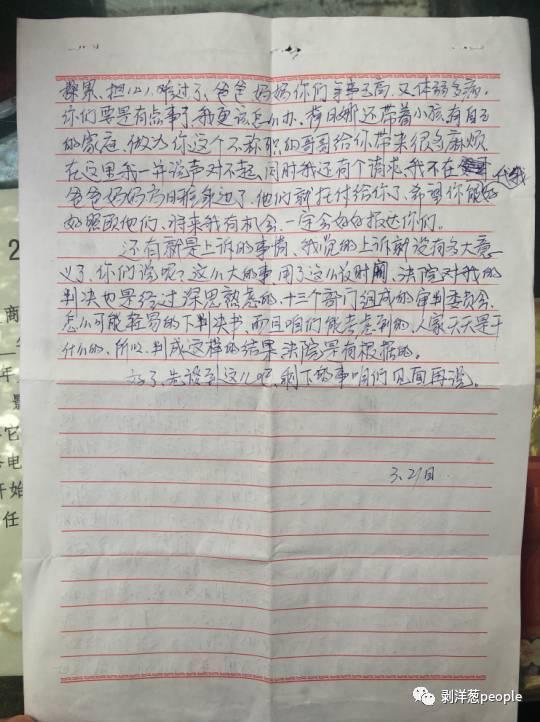 操累、担心、难过了、爸爸妈妈你们年事已高、又体弱多病,
你们要是有点事了我更该怎么办、荷日娜还带着小孩有自己
的家庭、做为你这个不称职的哥哥给你带来很多麻烦
在这里我一并说声对不起、同时我还有个请求、我不在
爸爸妈妈身边了、他们就托付给你了、希望你能替我好
好照顾他们、将来我有机会、一定会好好报达你们。
还有就是上诉的事情、我觉的上诉都没有多大意
义了、你们说呢?这么大的事、用了这么长时间、法院对我的
判决也是经过深思熟虑的、十三个部门组成的审判委员会、
怎么可能轻易的下判决书、而且咱们能考虑到的人家天天是干
什么的、所以、判成这样的结果法院是有根据的。
好了、先说到这儿吧、剩下的事咱们见面再说。
3、21日
2
商
年
电
开始
任
剥洋葱people